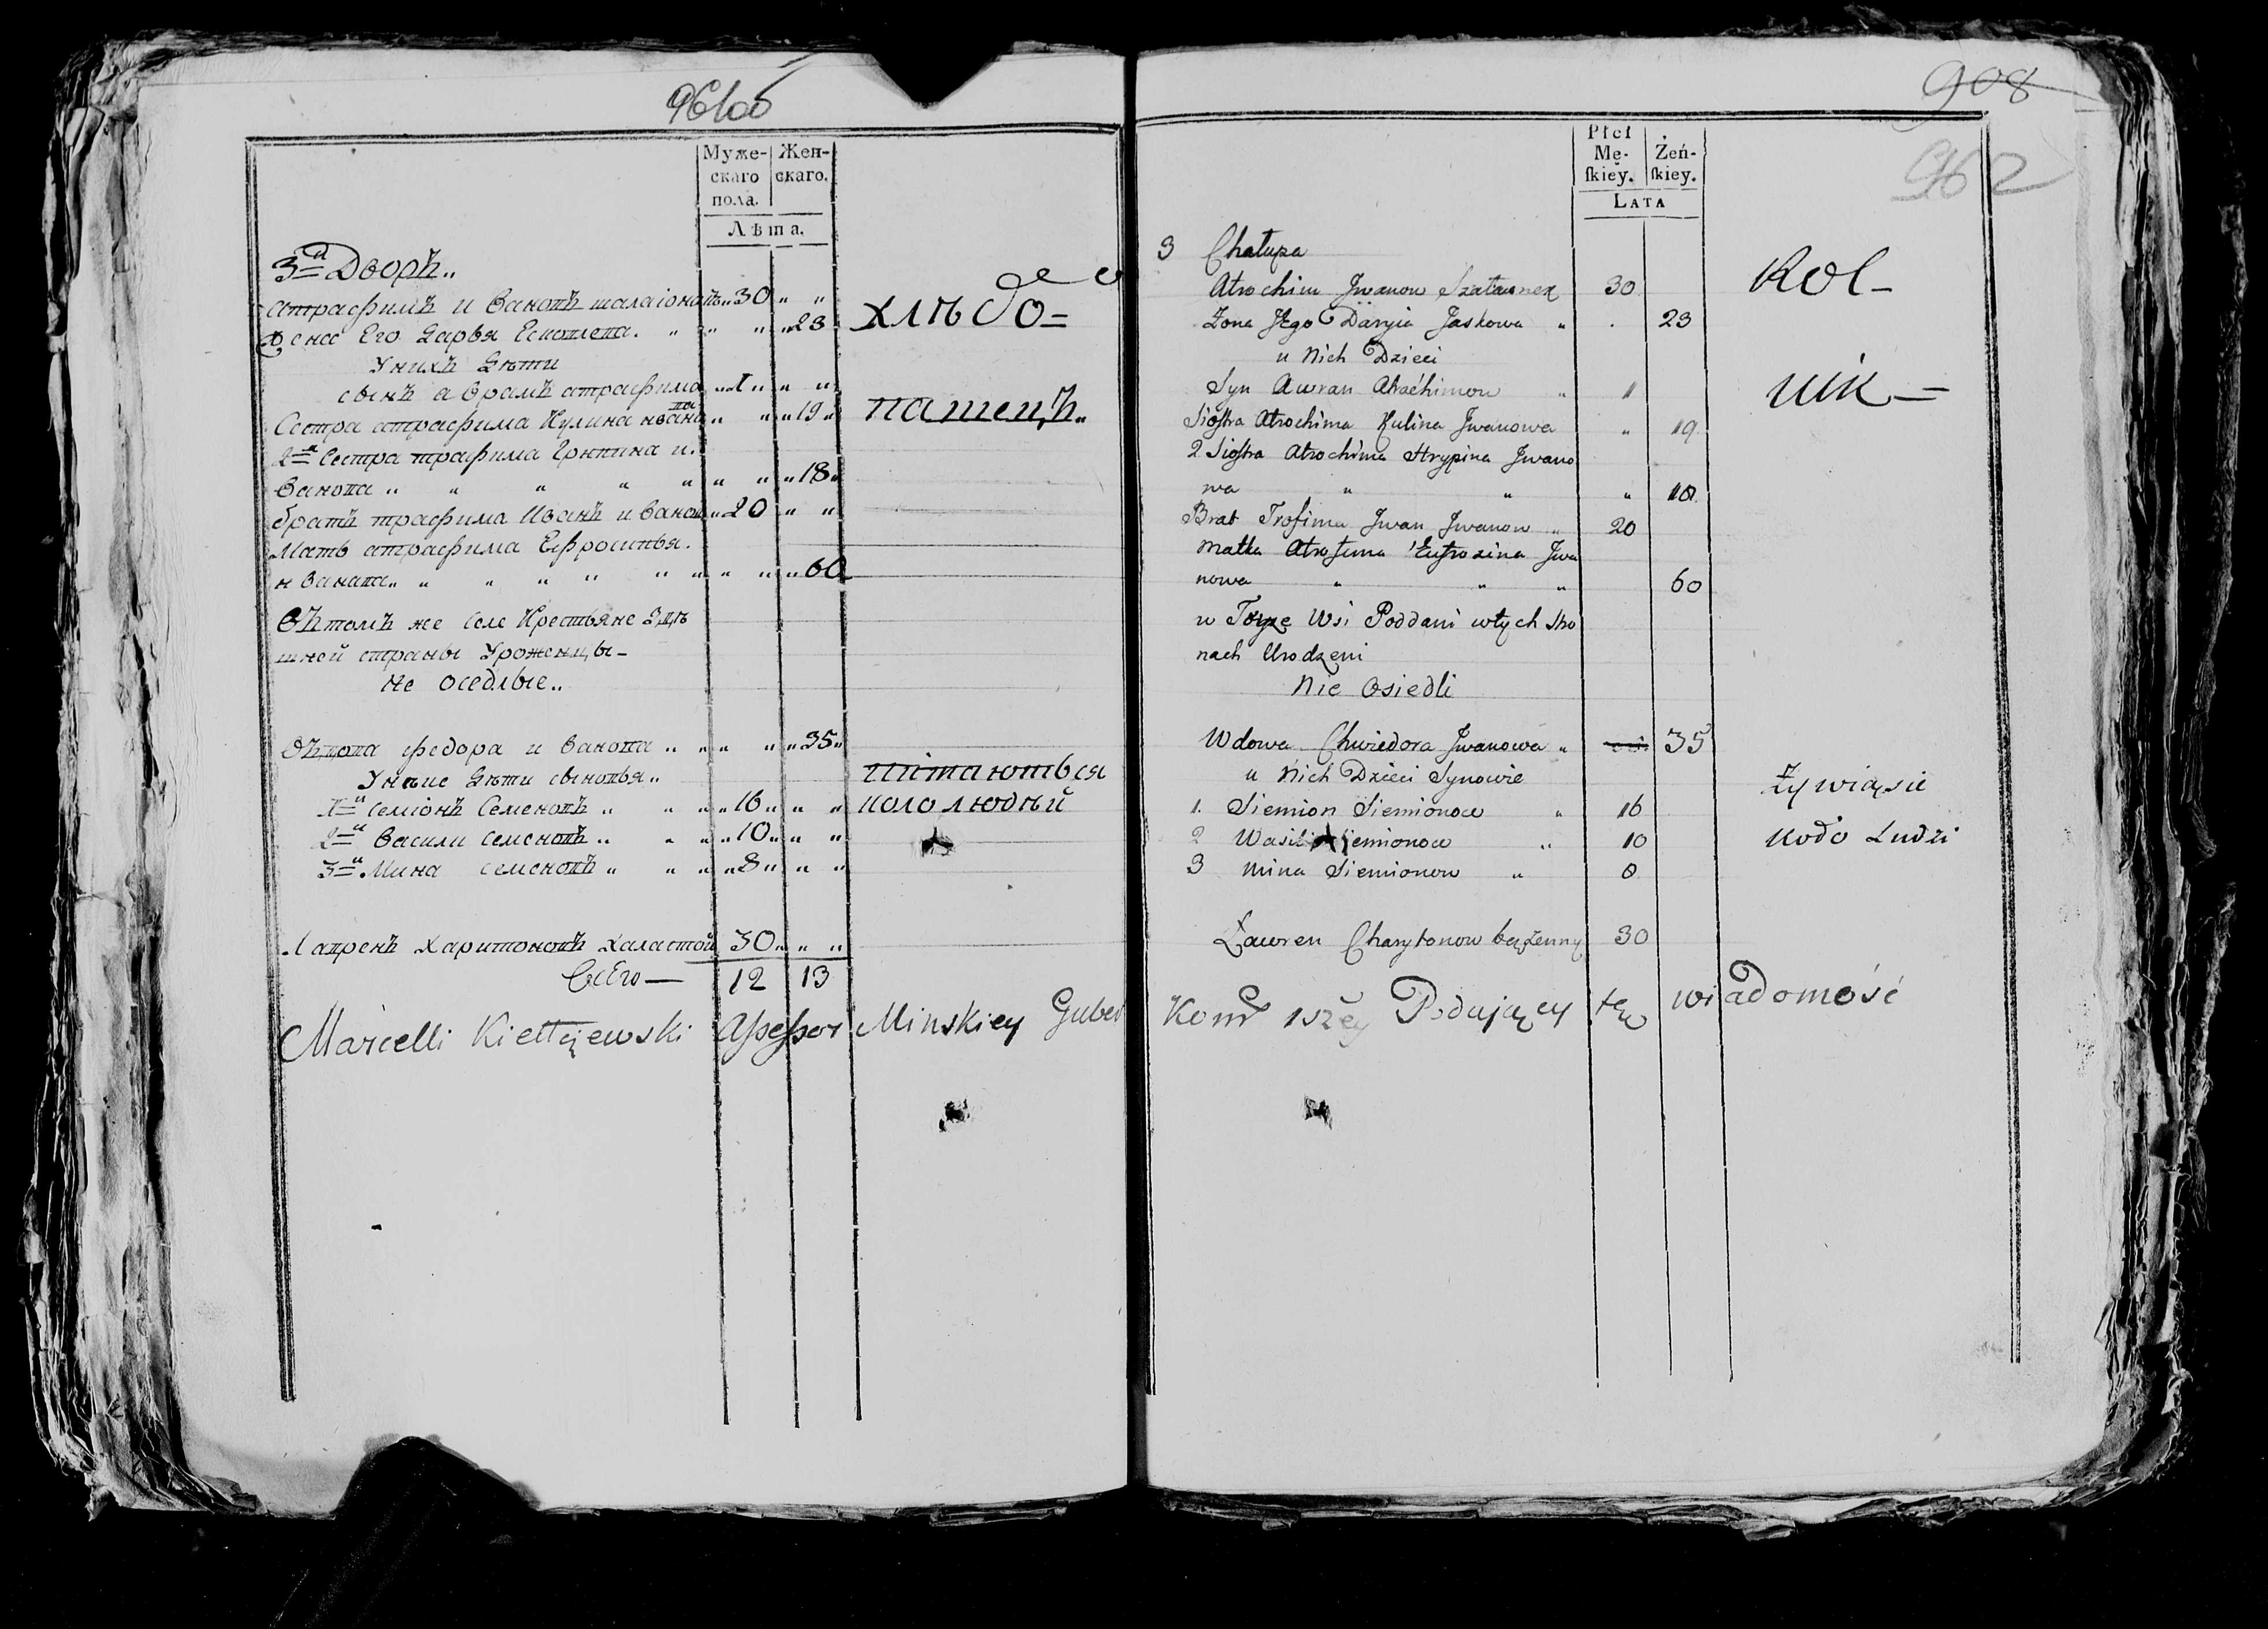 961об
Муже- Жен-
скаго скаго.
пола.
Лѣта.
3й Дворъ..
Атрафимъ и Вановъ шалаіоновъ „ 30 „ „
Жена Его Дарья Есковлева. „ „ „ „ 23
Унихъ Дѣти
сынъ аврамъ атрафимо „ 1 „ „ „
Сестра атрафима Кулина ивано ва „ „ „ 19 „
хлѣбо=
пашецъ..
2я Сестра трафима Грипина и.
Ванова „ „ „ „ „ „ „ „ 18 „
братъ трафима Иванъ иВанов „ 20 „ „
Мать атрафима Ефросинья.
и Ванава „ „ „ „ „ „ „ „ „ „ 60
Вътомъ же селе Крестьяне Здѣ
шней страны Уроженцы-
не оседлые..
Вдова федора и Ванова „ „ „ „ „ 35 „
Унеие Дѣти сыновья..
1й Семіонъ Семеновъ „ „ „ „ 16 „ „ „
2й Васили Семеновъ „ „ „ „ 10 „ „ „
3й Мина семеновъ „ „ „ „ 8 „ „ „
питаються
коло людѣй
Лавренъ Харитоновъ Халастой 30 „ „ „
ВсЕго — 12 13
Marcelli Kiełczewski Assessor Minskiey Guber
908
962
Płci
Mę- Żeń-
skiey. skiey.
LATA
3 Chałupa
Atrochim Jwanow 30
Żona Jego Daryia Jaskowa „ . 23
u Nich Dzieci
Syn Awran Atrachimow „ 1
Siostra Atrochima Kulina Jwanowa „ 19
2 Siostra Atrochima Hrypina Jwano
wa „ „ „ 18
Brat Trofima Jwan Jwanow „ 20
Matka Atrofima Eufrozina Jwa
nowa „ „ „ 60
Rol-
nik —
w Teyze Wsi Poddani wtych stro
nach Urodzeni
Nie Osiedli
Wdowa Chwiedora Jwanowa „ 35
u Nich Dzieci Synowie
1. Siemion Siemionow „ 16
2 Wasili Siemionow „ 10
3 Mina Siemionow „ 8
Żywiąsie
koło Ludzi
Ławren Charytonow beżenny 30
Komr 1szey Podający tę wiadomość